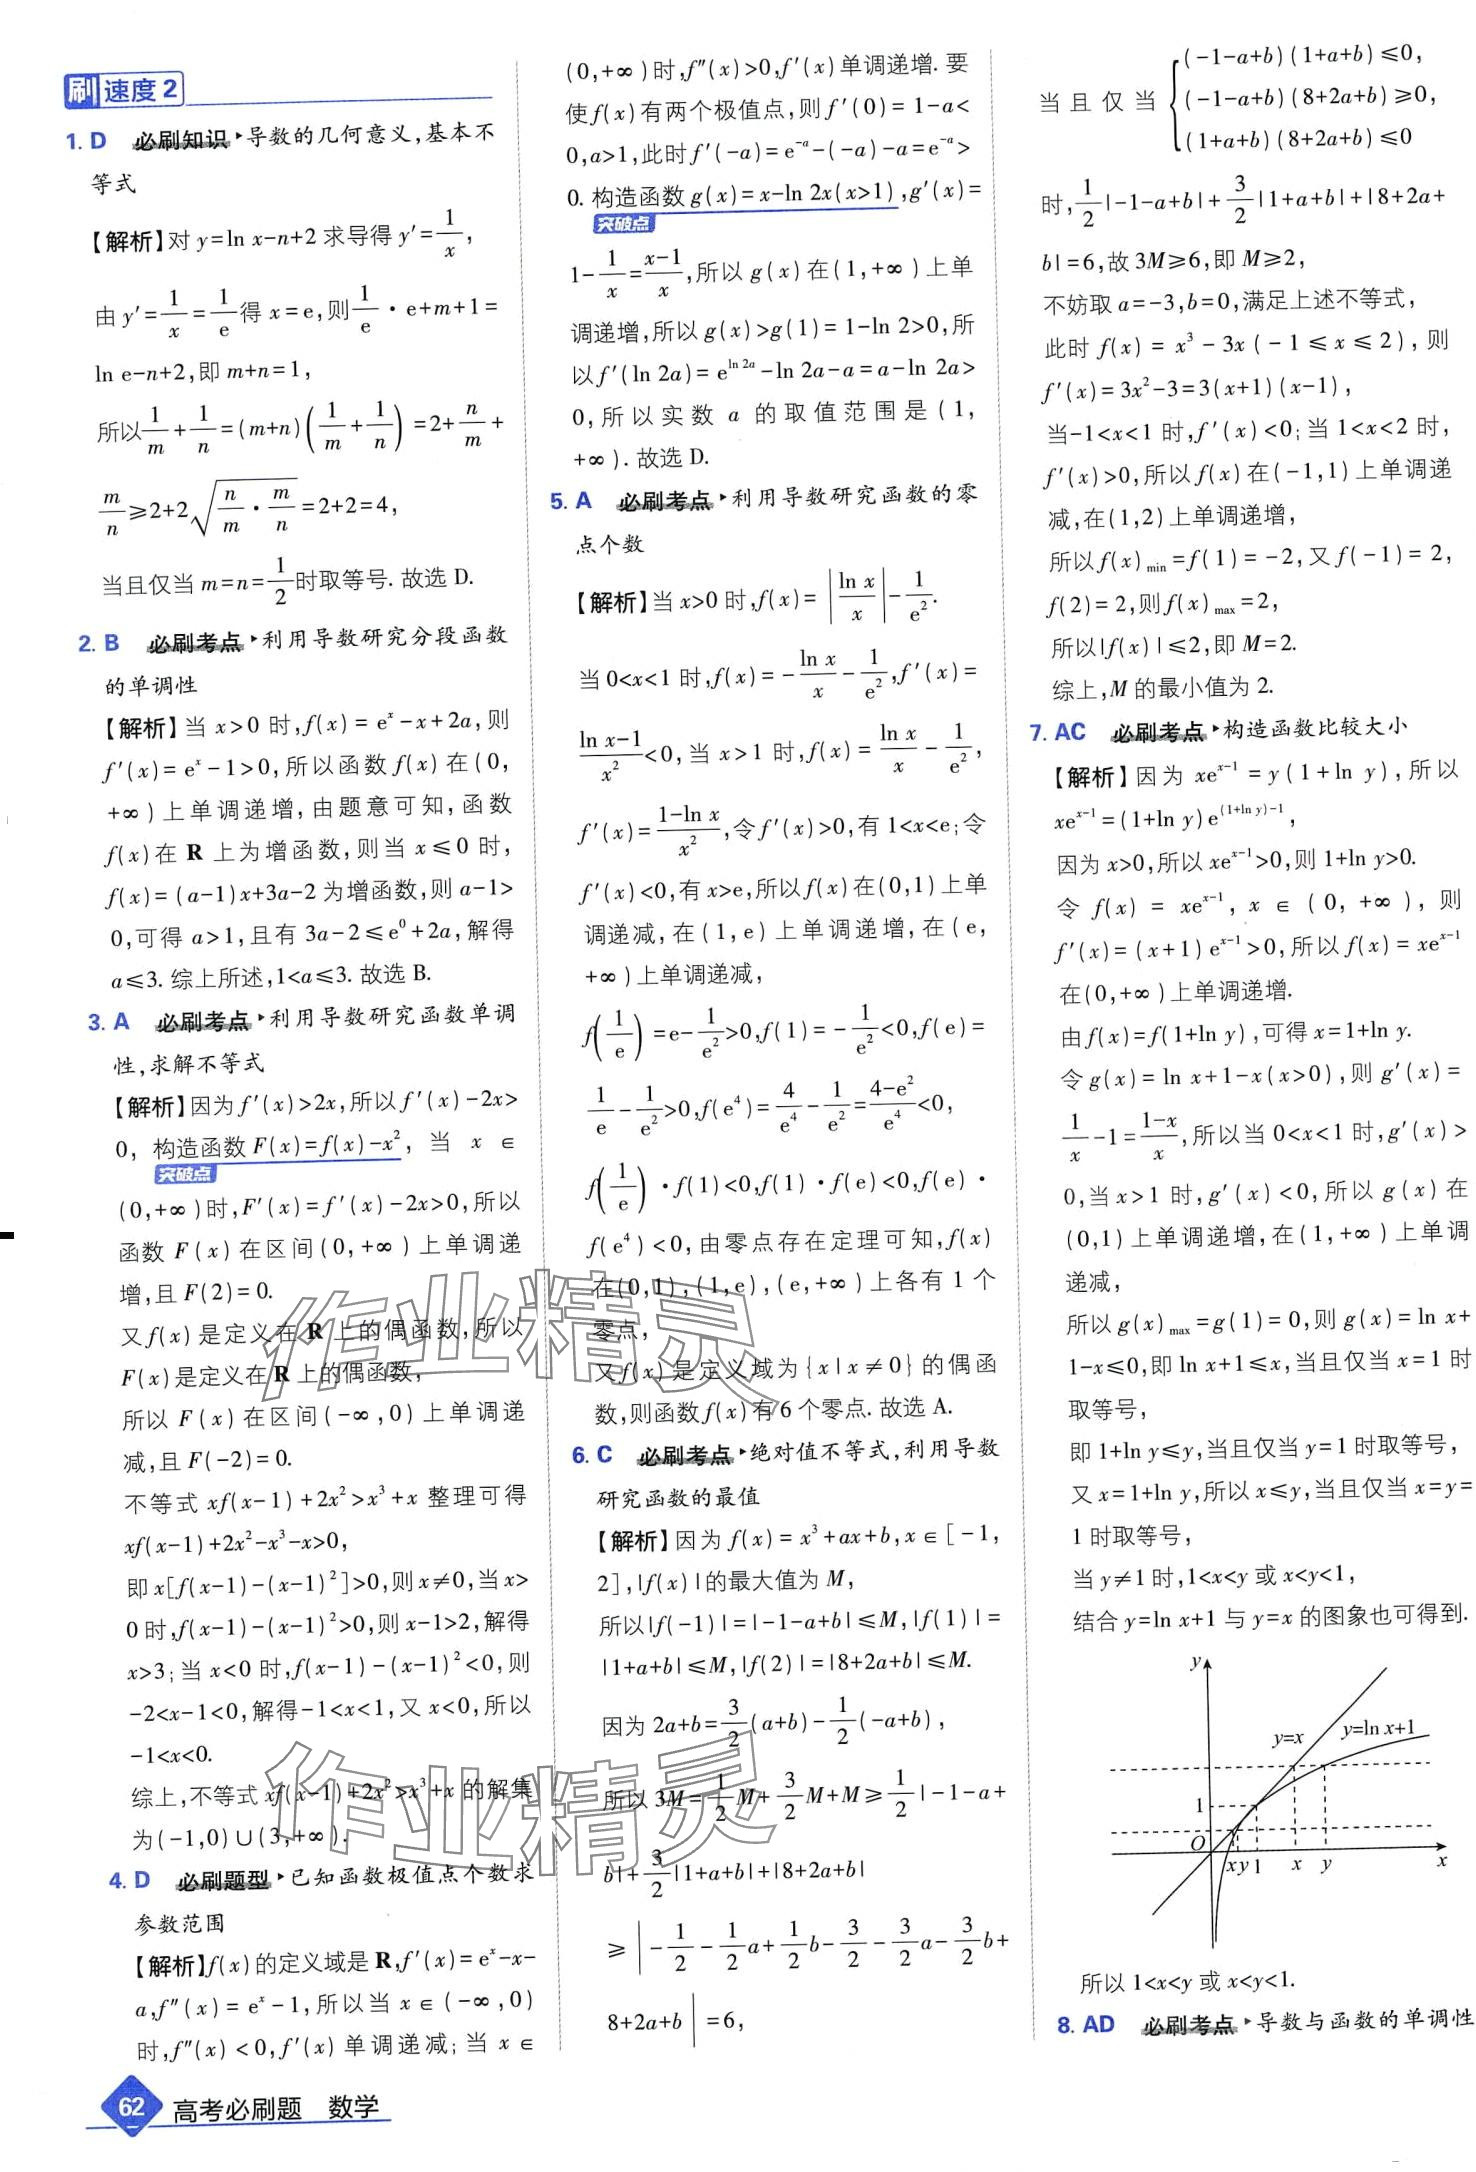 刷 速度2
1. D 必刷知识 导数的几何意义,基本不
等式
【解析】对 y=ln x-n+2 求导得 y′=1/x,
由 y′=1/x=1/e得 x=e,则1/e·e+m+1=
ln e-n+2,即 m+n=1,
所以1/m+1/n=(m+n)(1/m+1/n)=2+n/m+
m/n≥2+2√(n/m·m/n)=2+2=4,
当且仅当 m=n=1/2时取等号. 故选 D.
2. B 必刷考点 利用导数研究分段函数
的单调性
【解析】当 x>0 时,f(x)=eˣ-x+2a,则
f′(x)=eˣ-1>0,所以函数 f(x)在(0,
+∞)上单调递增,由题意可知,函数
f(x)在 R 上为增函数,则当 x≤0 时,
f(x)=(a-1)x+3a-2 为增函数,则 a-1>
0,可得 a>1,且有 3a-2≤e⁰+2a,解得
a≤3. 综上所述,1<a≤3. 故选 B.
3. A 必刷考点 利用导数研究函数单调
性,求解不等式
【解析】因为 f′(x)>2x,所以 f′(x)-2x>
0,构造函数 F(x)=f(x)-x²,当 x∈
突破点
(0,+∞)时,F′(x)=f′(x)-2x>0,所以
函数 F(x)在区间(0,+∞)上单调递
增,且 F(2)=0.
又 f(x)是定义在 R 上的偶函数,所以
F(x)是定义在 R 上的偶函数,
所以 F(x)在区间(-∞,0)上单调递
减,且 F(-2)=0.
不等式 xf(x-1)+2x²>x³+x 整理可得
xf(x-1)+2x²-x³-x>0,
即 x[f(x-1)-(x-1)²]>0,则 x≠0,当 x>
0 时,f(x-1)-(x-1)²>0,则 x-1>2,解得
x>3;当 x<0 时,f(x-1)-(x-1)²<0,则
-2<x-1<0,解得-1<x<1,又 x<0,所以
-1<x<0.
综上,不等式 xf(x-1)+2x²>x³+x 的解集
为(-1,0)∪(3,+∞).
4. D 必刷题型 已知函数极值点个数求
参数范围
【解析】f(x)的定义域是 R,f′(x)=eˣ-x-
a,f″(x)=eˣ-1,所以当 x∈(-∞,0)
时,f″(x)<0,f′(x)单调递减;当 x∈
62 高考必刷题 数学
(0,+∞)时,f″(x)>0,f′(x)单调递增. 要
使 f(x)有两个极值点,则 f′(0)=1-a<
0,a>1,此时 f′(-a)=e⁻ᵃ-(-a)-a=e⁻ᵃ>
0. 构造函数 g(x)=x-ln 2x(x>1),g′(x)=
突破点
1-1/x=(x-1)/x,所以 g(x)在(1,+∞)上单
调递增,所以 g(x)>g(1)=1-ln 2>0,所
以 f′(ln 2a)=e^(ln 2a)-ln 2a-a=a-ln 2a>
0,所以实数 a 的取值范围是(1,
+∞). 故选 D.
5. A 必刷考点 利用导数研究函数的零
点个数
【解析】当 x>0 时,f(x)=|ln x/x|-1/e².
当 0<x<1 时,f(x)=-ln x/x-1/e²,f′(x)=
(ln x-1)/x²<0,当 x>1 时,f(x)=ln x/x-1/e²,
f′(x)=(1-ln x)/x²,令 f′(x)>0,有 1<x<e;令
f′(x)<0,有 x>e,所以 f(x)在(0,1)上单
调递减,在(1,e)上单调递增,在(e,
+∞)上单调递减,
f(1/e)=e-1/e²>0,f(1)=-1/e²<0,f(e)=
1/e-1/e²>0,f(e⁴)=4/e⁴-1/e²=(4-e²)/e⁴<0,
f(1/e)·f(1)<0,f(1)·f(e)<0,f(e)·
f(e⁴)<0,由零点存在定理可知,f(x)
在(0,1),(1,e),(e,+∞)上各有 1 个
零点,
又 f(x)是定义域为{x|x≠0}的偶函
数,则函数 f(x)有 6 个零点. 故选 A.
6. C 必刷考点 绝对值不等式,利用导数
研究函数的最值
【解析】因为 f(x)=x³+ax+b,x∈[-1,
2],|f(x)|的最大值为 M,
所以|f(-1)|=|-1-a+b|≤M,|f(1)|=
|1+a+b|≤M,|f(2)|=|8+2a+b|≤M.
因为 2a+b=3/2(a+b)-1/2(-a+b),
所以 3M=1/2M+3/2M+M≥1/2|-1-a+
b|+3/2|1+a+b|+|8+2a+b|
≥|-1/2-1/2a+1/2b-3/2-3/2a-3/2b+
8+2a+b|=6,
当且仅当{(-1-a+b)(1+a+b)≤0,
(-1-a+b)(8+2a+b)≥0,
(1+a+b)(8+2a+b)≤0
时,1/2|-1-a+b|+3/2|1+a+b|+|8+2a+
b|=6,故 3M≥6,即 M≥2,
不妨取 a=-3,b=0,满足上述不等式,
此时 f(x)=x³-3x(-1≤x≤2),则
f′(x)=3x²-3=3(x+1)(x-1),
当-1<x<1 时,f′(x)<0;当 1<x<2 时,
f′(x)>0,所以 f(x)在(-1,1)上单调递
减,在(1,2)上单调递增,
所以 f(x)min=f(1)=-2,又 f(-1)=2,
f(2)=2,则 f(x)max=2,
所以|f(x)|≤2,即 M=2.
综上,M 的最小值为 2.
7. AC 必刷考点 构造函数比较大小
【解析】因为 xeˣ⁻¹=y(1+ln y),所以
xeˣ⁻¹=(1+ln y)e^((1+ln y)-1),
因为 x>0,所以 xeˣ⁻¹>0,则 1+ln y>0.
令 f(x)=xeˣ⁻¹,x∈(0,+∞),则
f′(x)=(x+1)eˣ⁻¹>0,所以 f(x)=xeˣ⁻¹
在(0,+∞)上单调递增.
由 f(x)=f(1+ln y),可得 x=1+ln y.
令 g(x)=ln x+1-x(x>0),则 g′(x)=
1/x-1=(1-x)/x,所以当 0<x<1 时,g′(x)>
0,当 x>1 时,g′(x)<0,所以 g(x)在
(0,1)上单调递增,在(1,+∞)上单调
递减,
所以 g(x)max=g(1)=0,则 g(x)=ln x+
1-x≤0,即 ln x+1≤x,当且仅当 x=1 时
取等号,
即 1+ln y≤y,当且仅当 y=1 时取等号,
又 x=1+ln y,所以 x≤y,当且仅当 x=y=
1 时取等号,
当 y≠1 时,1<x<y 或 x<y<1,
结合 y=ln x+1 与 y=x 的图象也可得到.
y
y=x y=ln x+1
1
O xy 1 x y x
所以 1<x<y 或 x<y<1.
8. AD 必刷考点 导数与函数的单调性
作业精灵
作业精灵